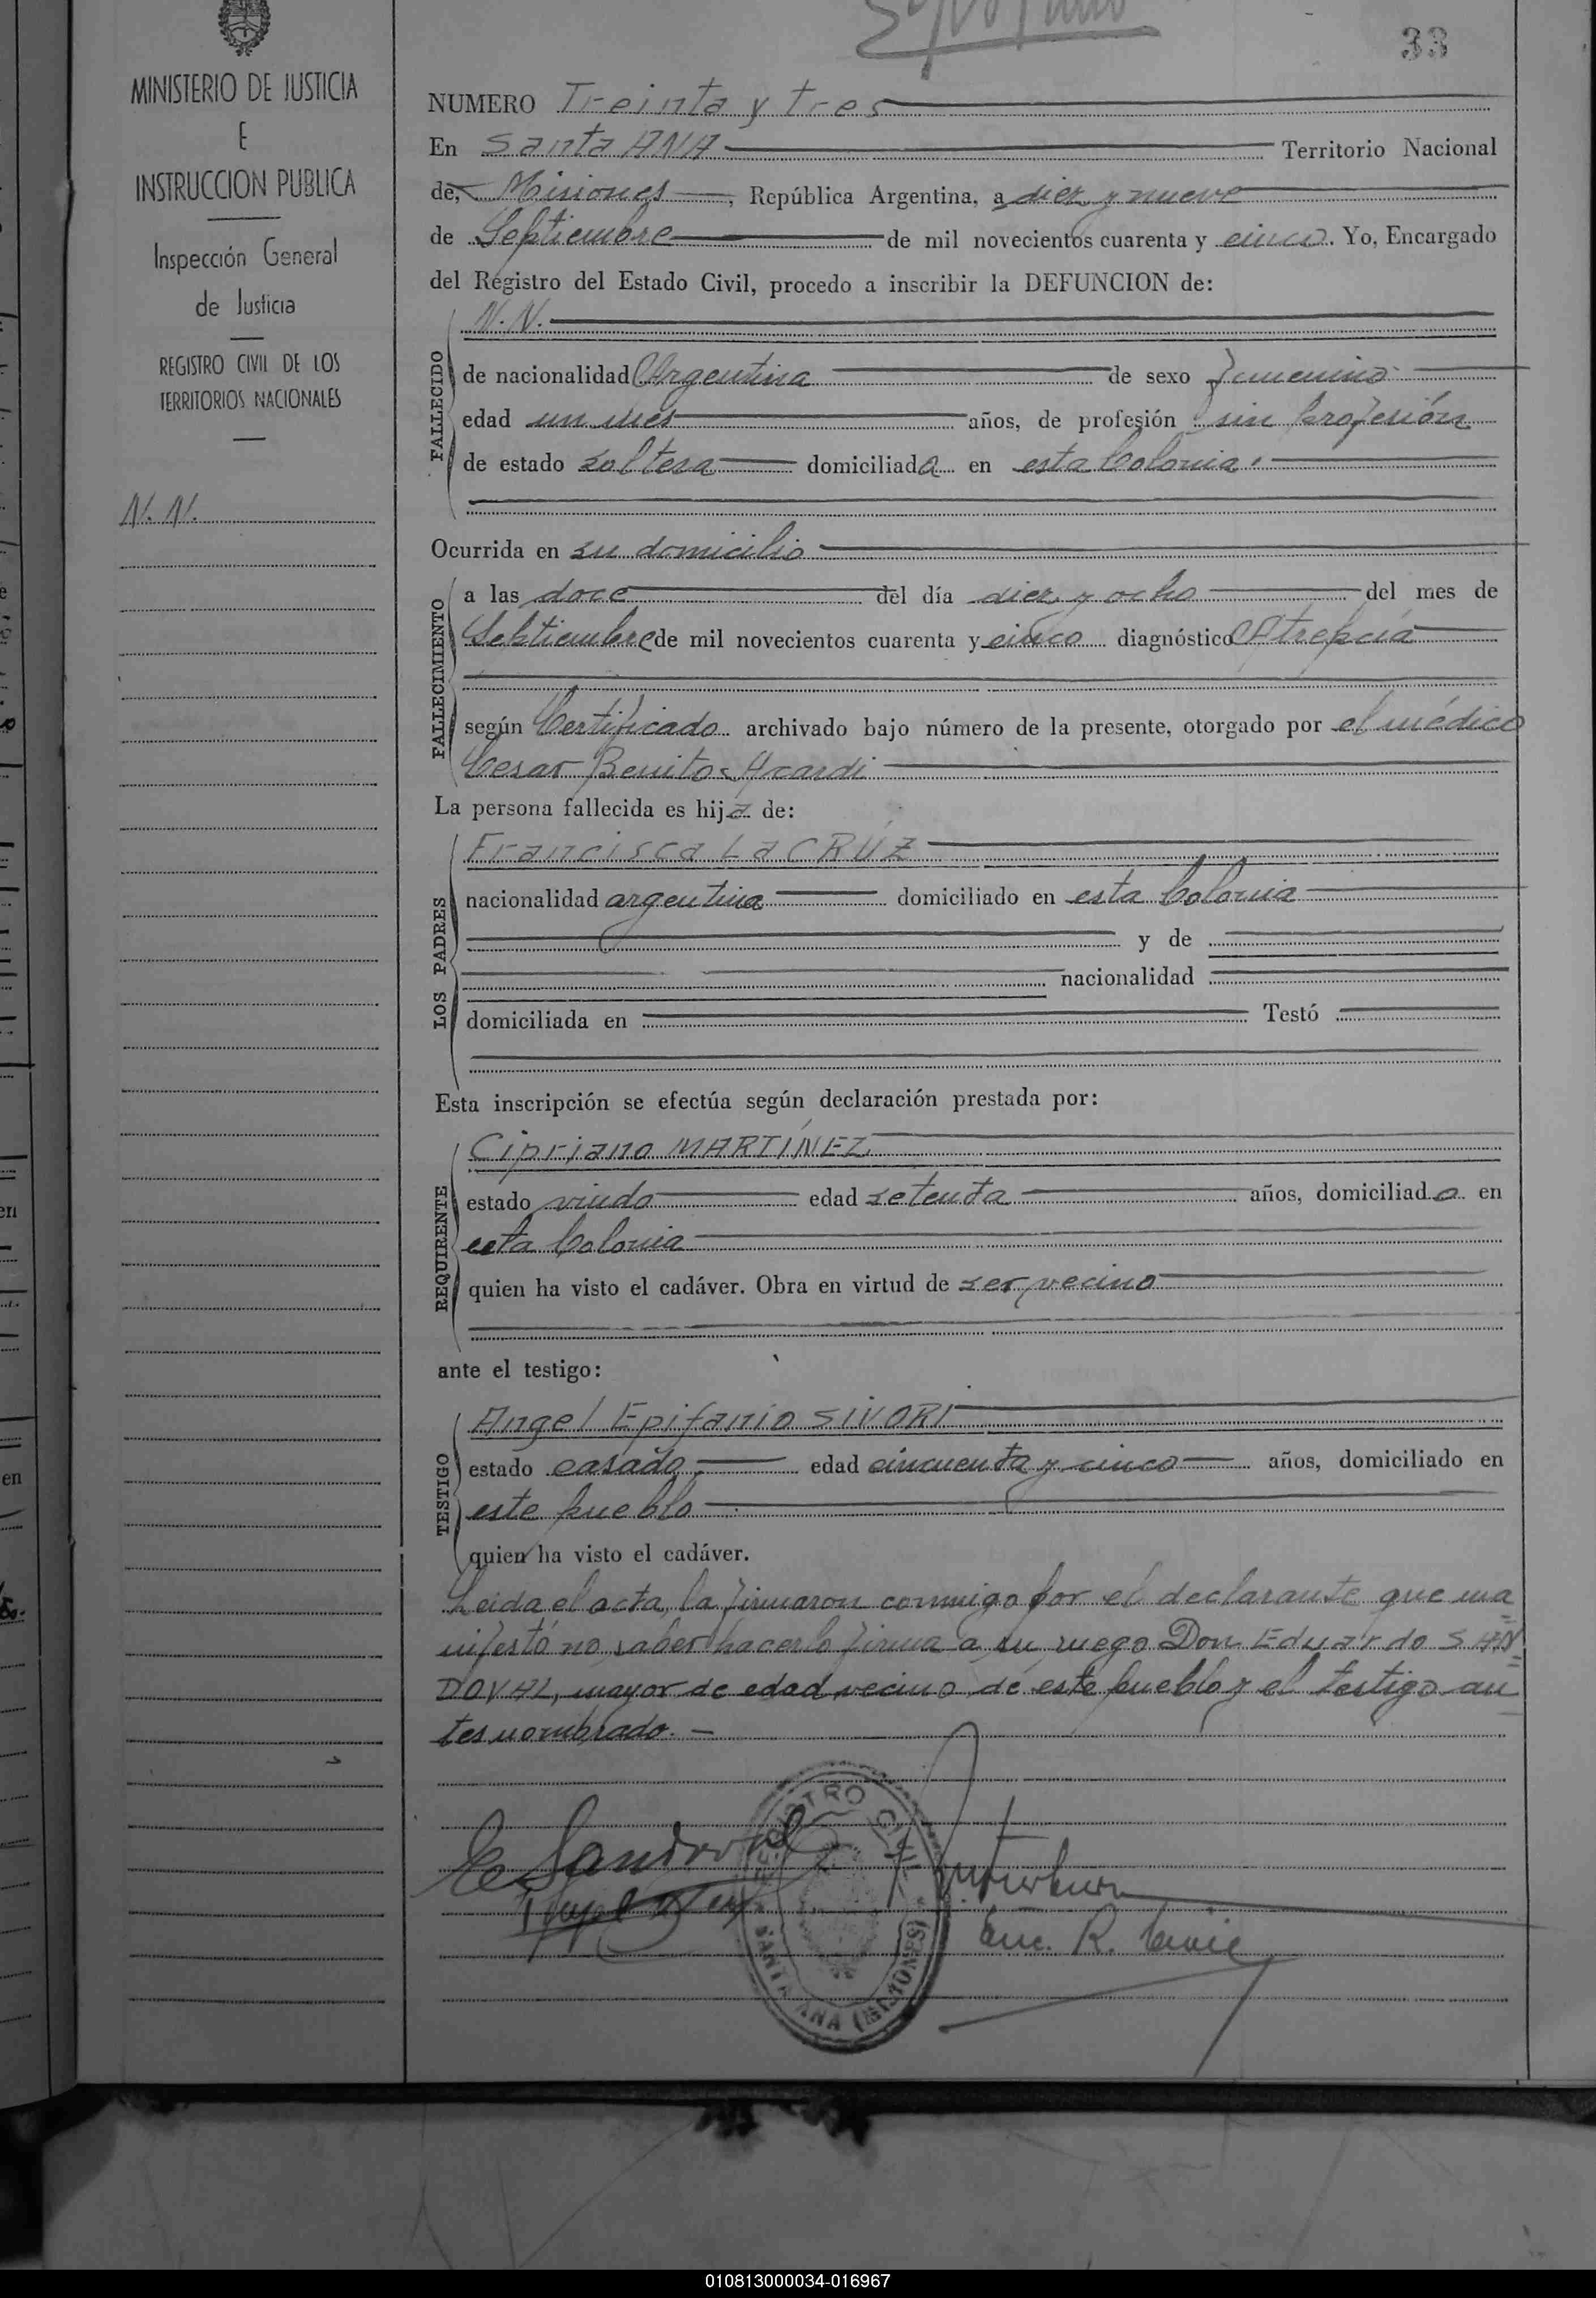 33
MINISTERIO DE JUSTICIA
E
INSTRUCCION PUBLICA
Inspección General
de Justicia
REGISTRO CIVIL DE LOS
TERRITORIOS NACIONALES
N. N.
NUMERO Treinta y tres
En Santa ANA Territorio Nacional
de, Misiones, República Argentina, a diez y nueve
de Septiembre de mil novecientos cuarenta y cinco. Yo, Encargado
del Registro del Estado Civil, procedo a inscribir la DEFUNCION de:
N. N.
FALLECIDO
de nacionalidad Argentina de sexo femenino
edad un mes años, de profesión sin profesión
de estado soltera domiciliada en esta Colonia.
Ocurrida en su domicilio
FALLECIMIENTO
a las doce del día diez y ocho del mes de
Septiembre de mil novecientos cuarenta y cinco diagnóstico Atrepcia
según Certificado archivado bajo número de la presente, otorgado por el médico
Cesar Benito Acardi
La persona fallecida es hija de:
LOS PADRES
Francisca La CRUZ
nacionalidad argentina domiciliado en esta Colonia
y de
nacionalidad
domiciliada en Testó
Esta inscripción se efectúa según declaración prestada por:
REQUIRENTE
Cipriano MARTÍNEZ
estado viudo edad setenta años, domiciliado en
esta Colonia
quien ha visto el cadáver. Obra en virtud de ser vecino
ante el testigo:
TESTIGO
Angel Epifanio SIVORI
estado casado, edad cincuenta y cinco años, domiciliado en
este pueblo
quien ha visto el cadáver.
Leida el acta, la firmaron conmigo por el declarante que ma
nifestó no saber hacerlo firma a su ruego Don Eduardo SAN
DOVAL, mayor de edad vecino de este pueblo y el testigo an
tes nombrado. —
E Sandoval
Enc. R. Civil
REGISTRO CIVIL
SANTA ANA (MISIONES)
010813000034-016967